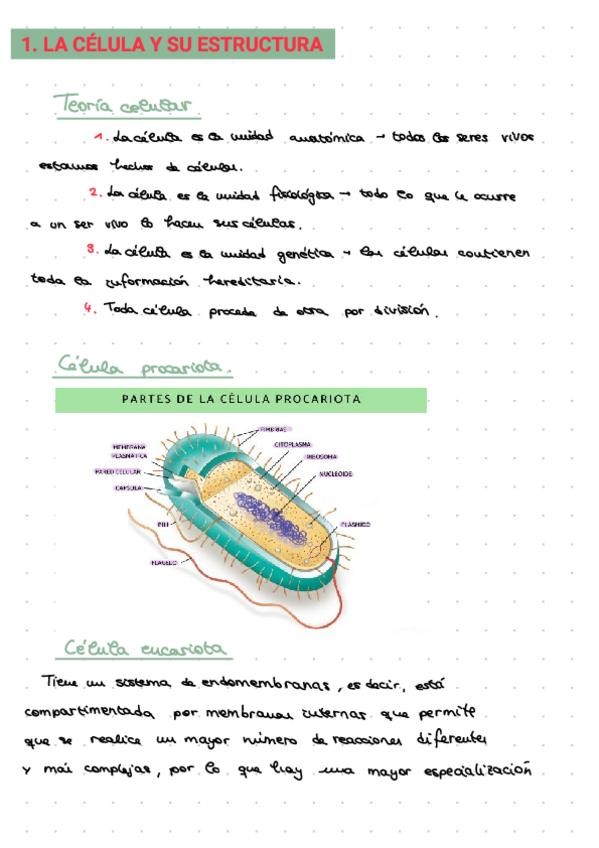 1. LA CÉLULA Y SU ESTRUCTURA
Teoría celular.
1. La célula es la unidad anatómica → todos los seres vivos
estamos hechos de células.
2. La célula es la unidad fisiológica → todo lo que le ocurre
a un ser vivo lo hacen sus células.
3. La célula es la unidad genética → las células contienen
toda la información hereditaria.
4. Toda célula procede de otra por división.
Célula procariota.
PARTES DE LA CÉLULA PROCARIOTA
FIMBRIAS
CITOPLASMA
MEMBRANA
PLASMÁTICA
RIBOSOMA
PARED CELULAR
NUCLEOIDE
CAPSULA
PILI
PLÁSMIDO
FLAGELO
Célula eucariota
Tiene un sistema de endomembranas, es decir, está
compartimentada por membranas internas que permite
que se realice un mayor número de reacciones diferentes
y más complejas, por lo que hay una mayor especialización